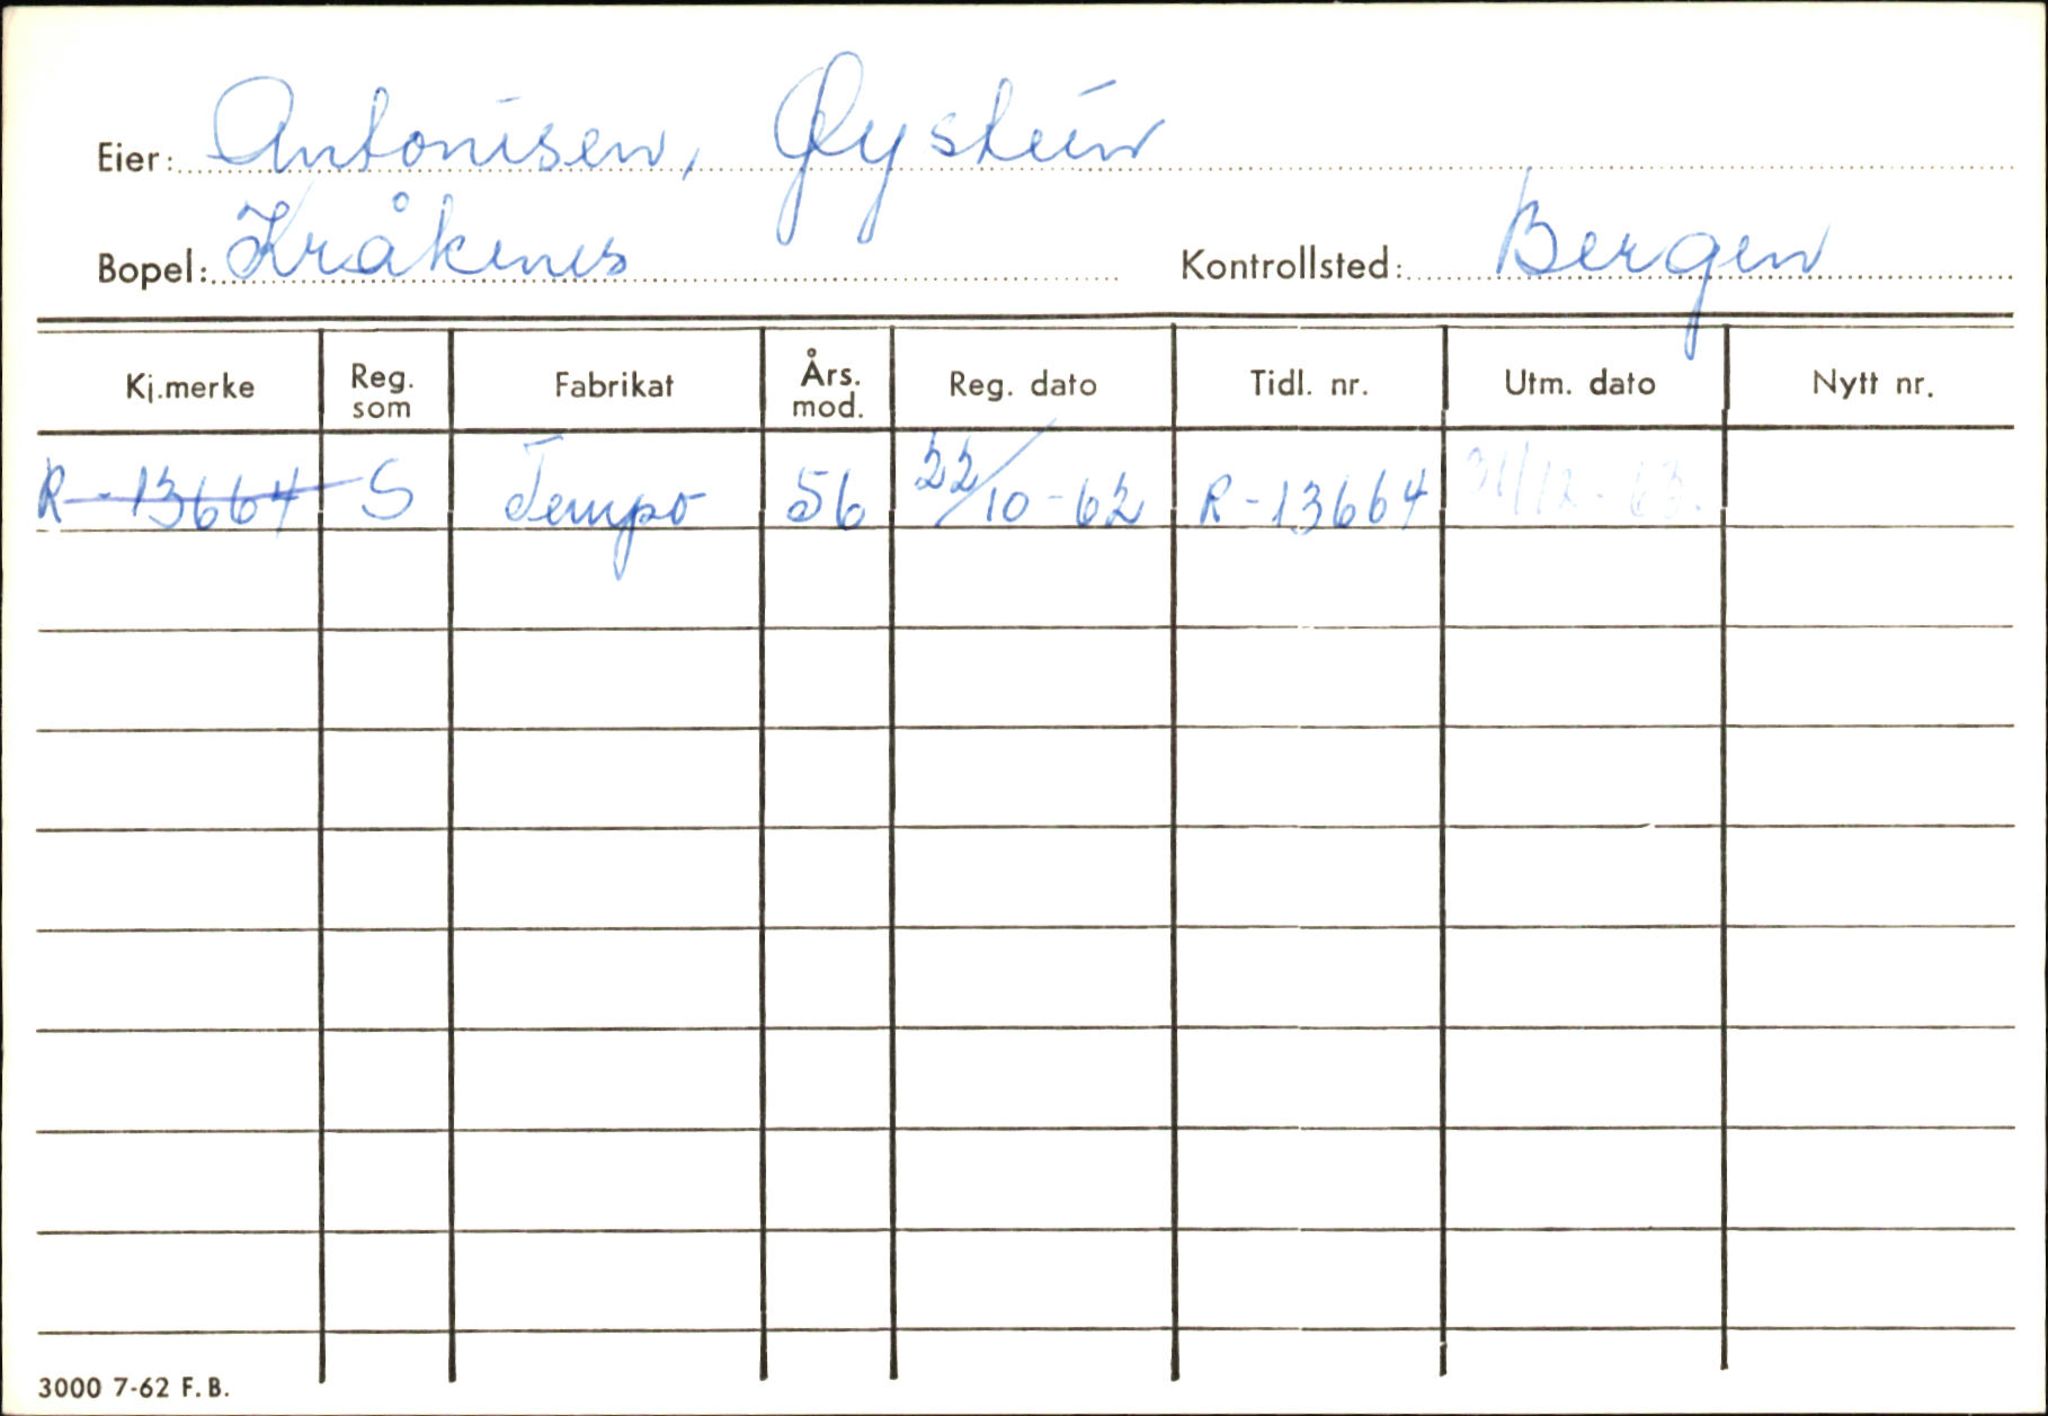 Eier: Antonisen, Øystein
Bopel: Kråkenes Kontrollsted: Bergen
Kj.merke Reg. som Fabrikat Års. mod. Reg. dato Tidl. nr. Utm. dato Nytt nr.
R-13664 S Tempo 56 22/10-62 R-13664 31/12-63.
3000 7-62 F.B.